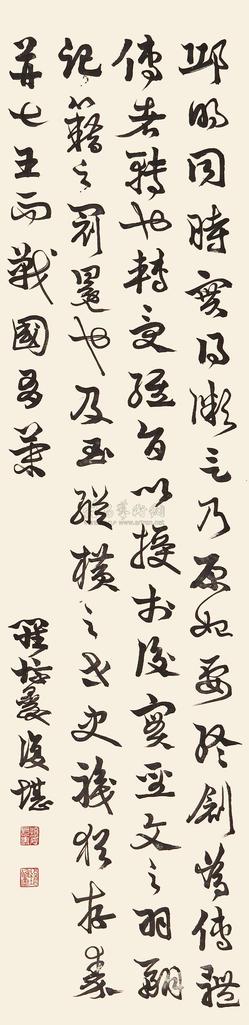 邱明同時實得微言乃原始要終創為傳體
傳者轉也轉受經旨以授於後實聖文之羽翮
記籍之冠冕也及至縱橫之世史職猶存秦
并七王而戰國有策
羅惇㬊復堪